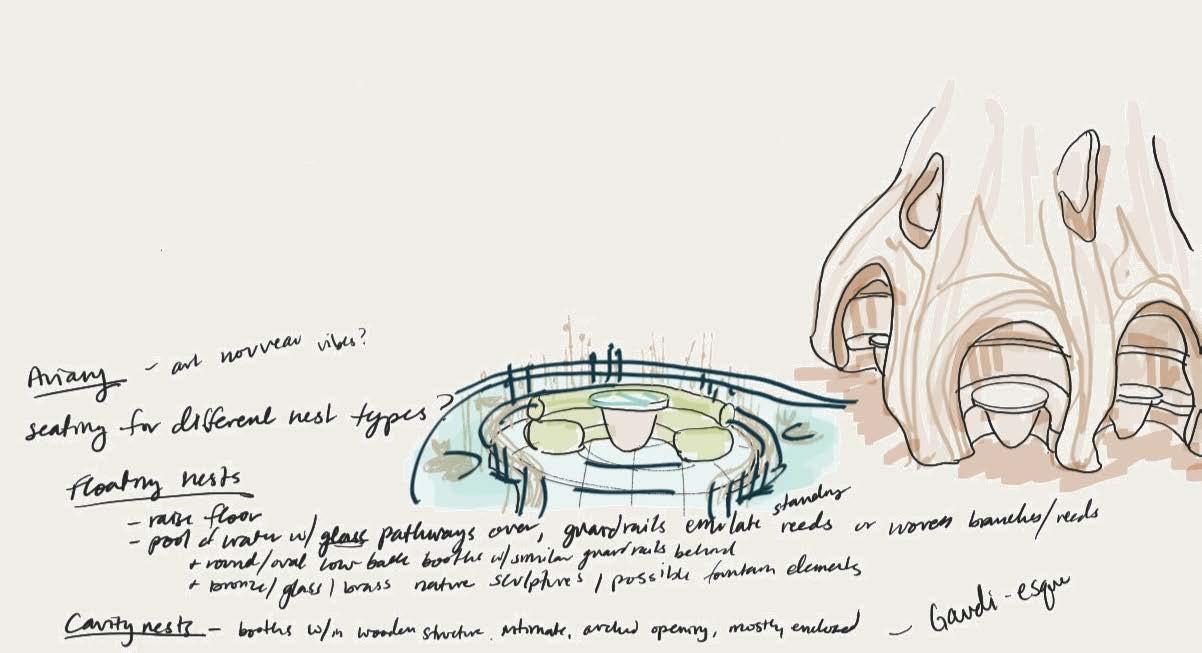 Aviary - art nouveau vibes?
seating for different nest types?
Floating nests
- raise floor
- pool of water w/ glass pathways over, guardrails emulate standing reeds or woven branches/reeds
+ round/oval low back booths w/ similar guardrails behind
+ bronze/glass/brass nature sculptures / possible fountain elements
Cavity nests - booths w/in wooden structure, intimate, arched opening, mostly enclosed - Gaudi-esque